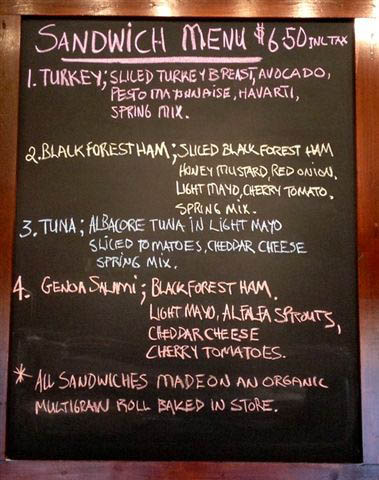 SANDWICH MENU $6.50 INL TAX
1. TURKEY; SLICED TURKEY BREAST, AVOCADO,
PESTO MAYONNAISE, HAVARTI,
SPRING MIX.
2. BLACK FOREST HAM; SLICED BLACK FOREST HAM
HONEY MUSTARD, RED ONION,
LIGHT MAYO, CHERRY TOMATO,
SPRING MIX.
3. TUNA; ALBACORE TUNA IN LIGHT MAYO
SLICED TOMATOES, CHEDDAR CHEESE
SPRING MIX.
4. GENOA SALAMI; BLACK FOREST HAM,
LIGHT MAYO, ALFALFA SPROUTS,
CHEDDAR CHEESE
CHERRY TOMATOES.
* ALL SANDWICHES MADE ON AN ORGANIC
MULTIGRAIN ROLL BAKED IN STORE.